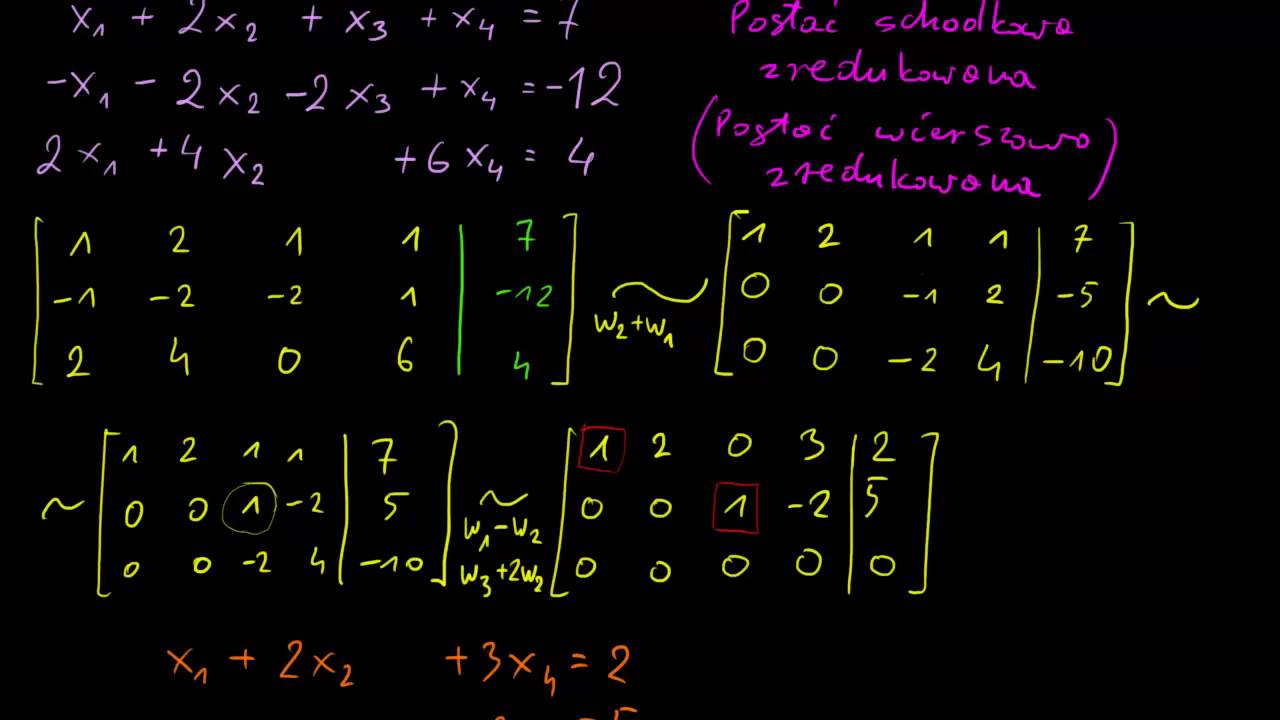 x₁ + 2x₂ + x₃ + x₄ = 7
-x₁ - 2x₂ -2x₃ + x₄ = -12
2x₁ +4x₂ +6x₄ = 4
Postać schodkowa
zredukowana
(Postać wierszowo
zredukowana)
1 2 1 1 | 7
-1 -2 -2 1 | -12
2 4 0 6 | 4
~
w₂+w₁
1 2 1 1 | 7
0 0 -1 2 | -5
0 0 -2 4 | -10
~
~
1 2 1 1 | 7
0 0 1 -2 | 5
0 0 -2 4 | -10
~
w₁-w₂
w₃+2w₂
1 2 0 3 | 2
0 0 1 -2 | 5
0 0 0 0 | 0
x₁ + 2x₂ +3x₄ = 2